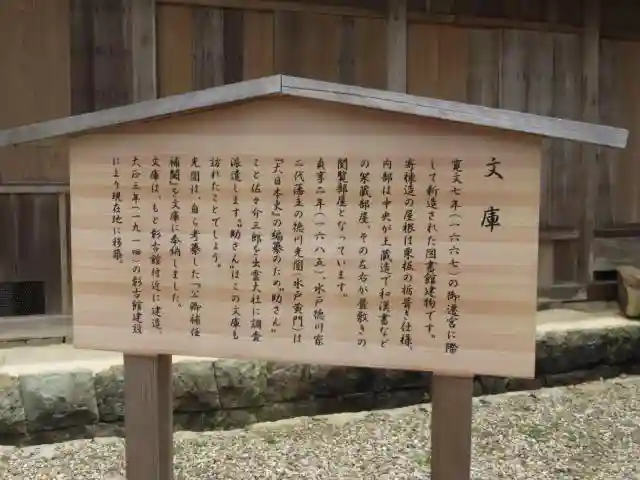 文庫
寛文七年(一六六七)の御遷宮に際
して新造された図書館建物です。
寄棟造の屋根は栗板の栃葺き仕様、
内部は中央が土蔵造で和漢書など
の架蔵部屋、その左右が畳敷きの
閲覧部屋となっています。
貞享二年(一六八五)、水戸徳川家
二代藩主の徳川光圀(水戸黄門)は
『大日本史』の編纂のため"助さん"
こと佐々介三郎を出雲大社に調査
派遣します。"助さん"はこの文庫も
訪れたことでしょう。
光圀は、自ら考纂した『公卿補任
補闕』を文庫に奉納しました。
文庫は、もと彰古館付近に建造、
大正三年(一九一四)の彰古館建設
により現在地に移築。